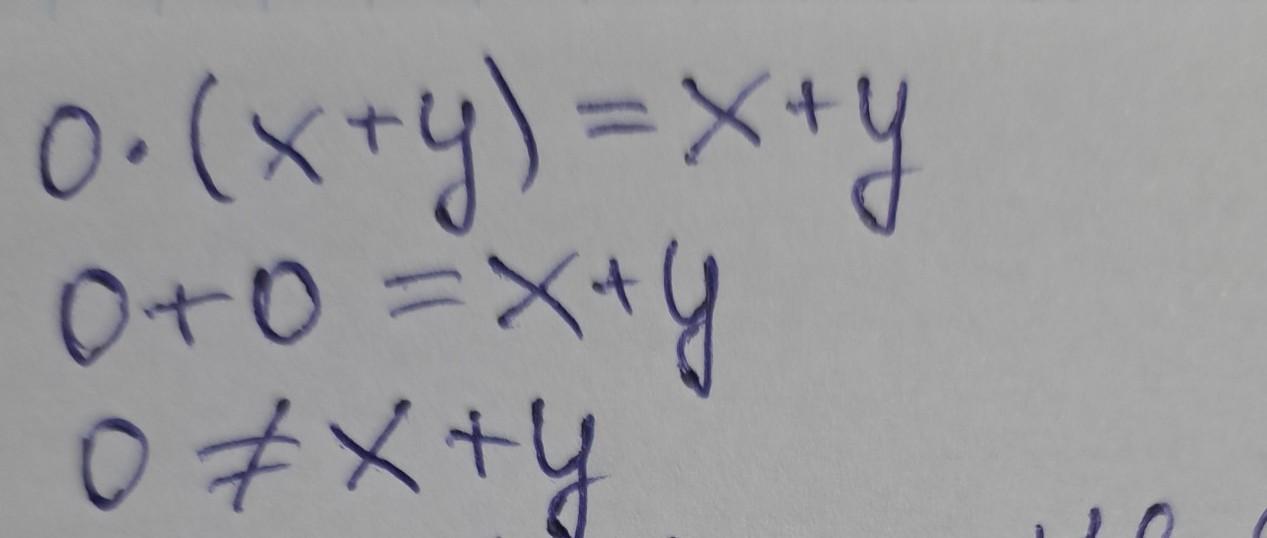 0·(x+y)=x+y
0+0=x+y
0≠x+y